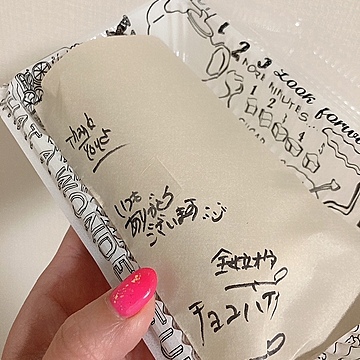 1 2 3 Look forw
most minutes..
1 2 3 4
SUGAR
Thank
you
いつも
ありがとう
ございます
全粒粉
チョコバナ
WHAT A WONDE